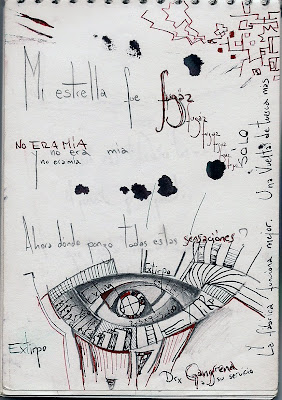 Mi estrella fue fugaz
fugaz
fugaz
fugaz
fugaz
SOLO
NO ERA MIA
y no era mia
no era mia
Ahora donde pongo todas estas sensaciones?
Extirpo
Extirpo
Drx Gangrena
a su servicio
La fabrica funciona mejor.
Una vuelta de tuerca mas